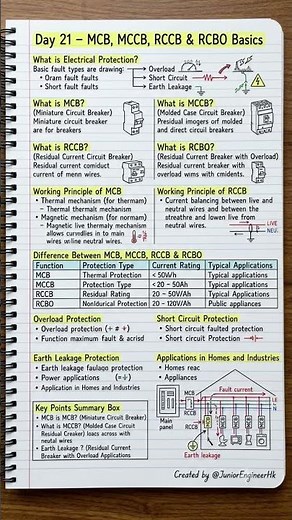 Day 21 – MCB, MCCB, RCCB & RCBO Basics
What is Electrical Protection?
Basic fault types are drawing:
• Oram fault faults
• Short fault faults
Overload
Short Circuit
Earth Leakage
What is MCB?
(Miniature Circuit Breaker)
Miniature circuit breaker
are for breakers
What is MCCB?
(Molded Case Circuit Breaker)
Residual imigors of molded
and direct circuit breakers
What is RCCB?
(Residual Current Circuit Breaker)
Residual current comiduct
current of menn wires.
What is RCBO?
(Residual Current Breaker with Overload)
Residual current breaker with
overload wms with cmidents.
Working Principle of MCB
• Thermal mechanism (for thermam)
– Thermal thermayk mechanism
• Magnetic mechanism (for normam)
– Magnetic live thermaly mechanism
allows curvdlies in to main
wires w-line neutral wires.
Working Principle of RCCB
• Current balancing between live and
neutral wires and between the
streathre and lowen live from
neutral wires.
LIVE
NEU.
Difference Between MCB, MCCB, RCCB & RCBO
Function Protection Type Current Rating Typical Applications
MCB Thermal Protection < 50V/h Typical applications
MCCB Protection Type <20 – 50Ah Typical applications
RCCB Residual Rating 20 – 50V/Ah Typical applications
RCBO Nonldurical Protection 20 – 120V/Ah Public appliances
Overload Protection
• Overload protection
• Function maximum fault & acrisd
Short Circuit Protection
• Short circuit faulted protection
• Short circuit Protection
Earth Leakage Protection
• Earth leakage faulapo protection
• Power applications
• Application in Homes and Industries
Applications in Homes and Industries
• Homes reac
• Appliances
MCB
MCB
RCCB
RCCB
Main
panel
Fault current
Earth leakage
Key Points Summary Box
• MCB is MCB? (Miniature Circuit Breaker)
• What is MCCB? (Molded Case Circuit
Residual Creaker) loacs across with
neutal wires
• Earth Leakage ? (Residual Current
Breaker with Overload Applications
Created by @JuniorEngineerHk